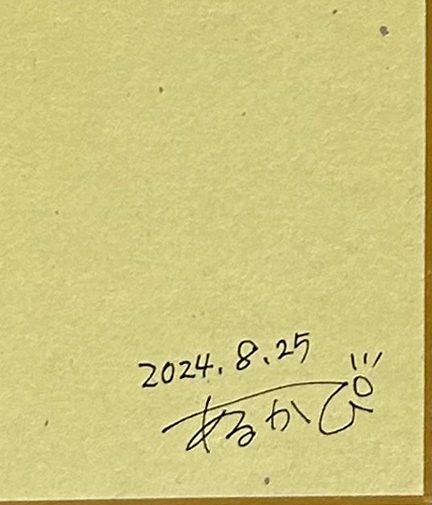 2024.8.25
あるかぴ